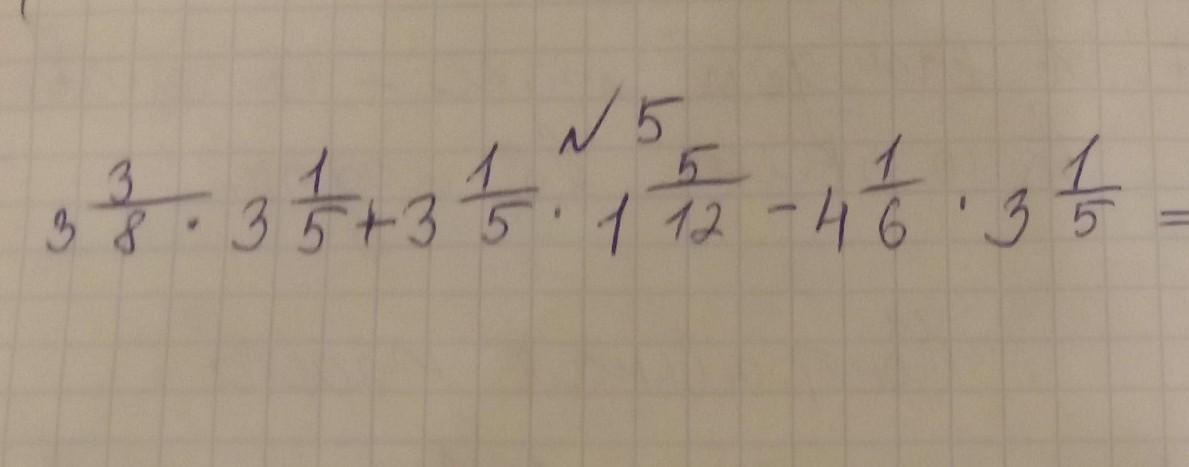 √5
3 3/8 · 3 1/5 + 3 1/5 · 1 5/12 - 4 1/6 · 3 1/5 =